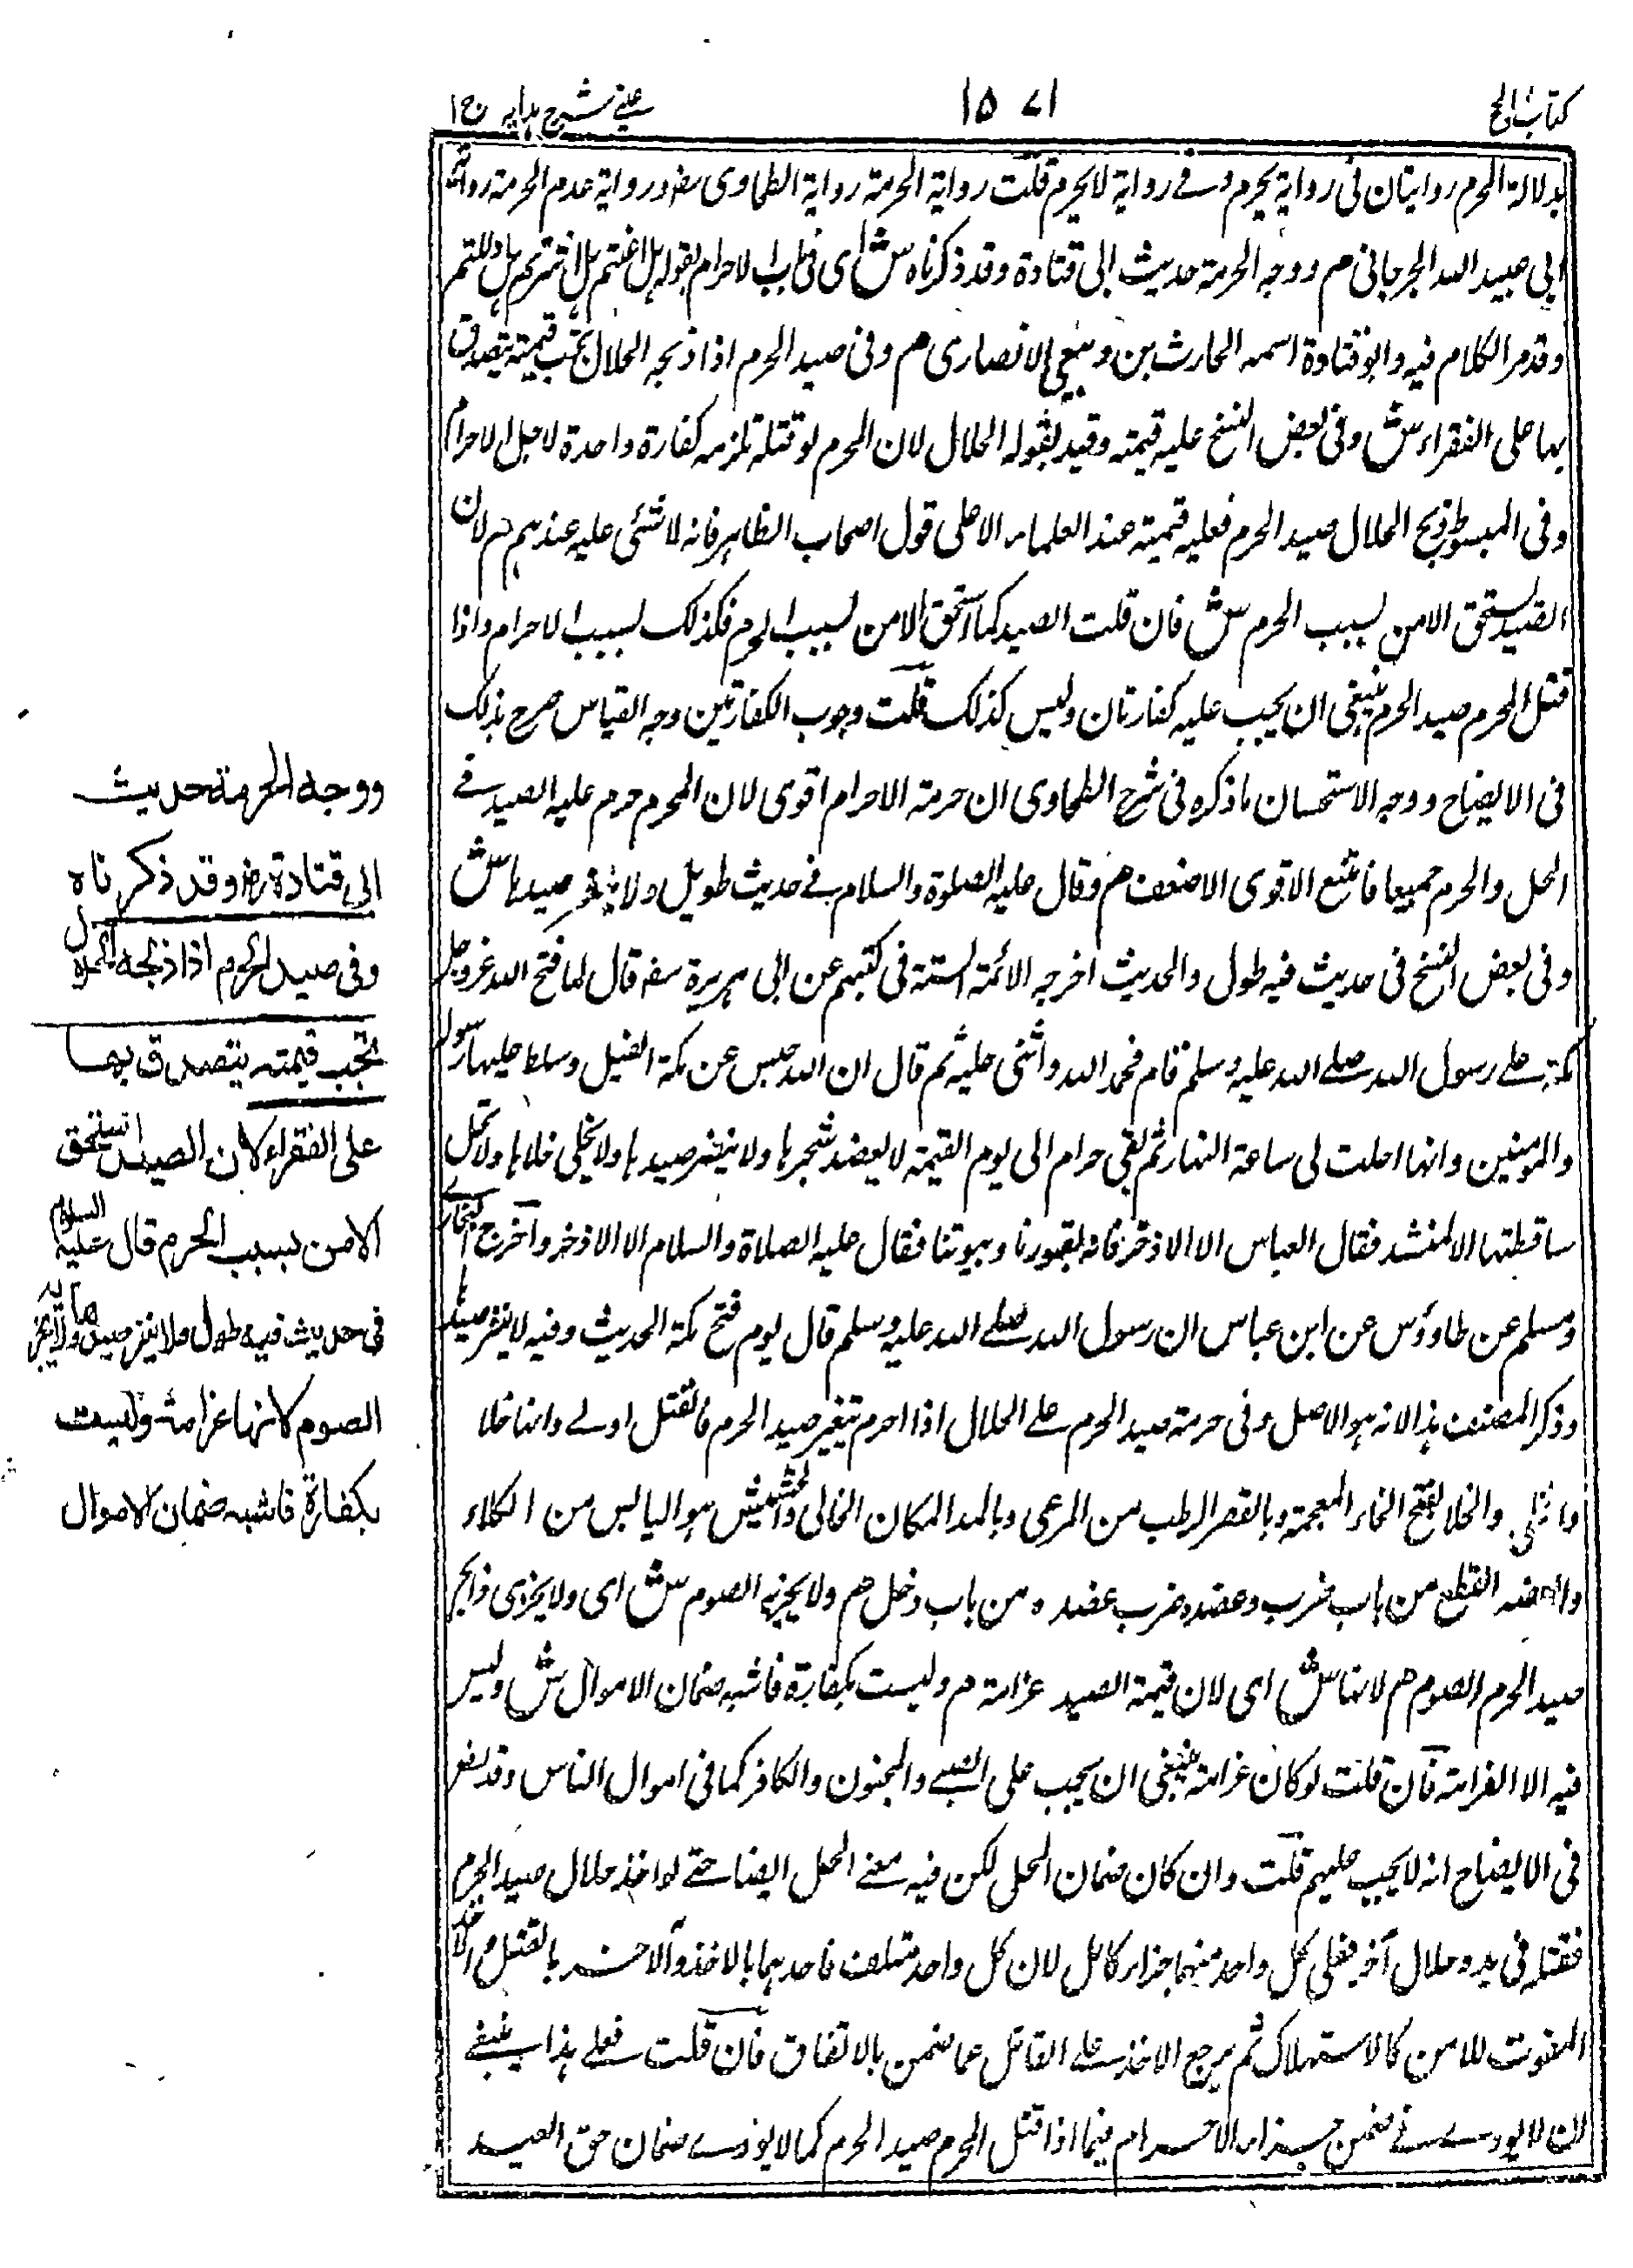 كتاب الحج
١٥٧١
عينى شرح هدايه ج١
بدلالة المحرم روايتان فى رواية يحرم وفى رواية لا يحرم قلت رواية الحرمة رواية الطحاوى رض ورواية عدم الحرمة رواية
ابى عبيد الله الجرجانى م ووجه الحرمة حديث ابى قتادة وقد ذكرناه ش اى فى باب الاحرام بقوله هل اعنتم هل اشرتم هل دللتم
وقد مر الكلام فيه وابو قتادة اسمه الحارث بن ربعى الانصارى م وفى صيد الحرم اذا ذبحه الحلال تجب قيمته يتصدق
بها على الفقراء ش وفى بعض النسخ عليه قيمته وقيد بقوله الحلال لان المحرم لو قتله تلزمه كفارة واحدة لاجل الاحرام
وفى المبسوط ذبح الحلال صيد الحرم فعليه قيمته عند العلماء الا على قول اصحاب الظاهر فانه لا شئى عليه عندهم م لان
الصيد استحق الامن بسبب الحرم ش فان قلت الصيد كما استحق الامن بسبب الحرم فكذلك بسبب الاحرام واذا
قتل المحرم صيد الحرم ينبغى ان يجب عليه كفارتان وليس كذلك قلت وجوب الكفارتين وجه القياس صرح بذلك
فى الايضاح ووجه الاستحسان ما ذكره فى شرح الطحاوى ان حرمة الاحرام اقوى لان المحرم حرم عليه الصيد فى
الحل والحرم جميعا فاتبع الاقوى الاضعف م وقال عليه الصلوة والسلام فى حديث طويل ولا ينفر صيدها ش
وفى بعض النسخ فى حديث فيه طول والحديث اخرجه الائمة الستة فى كتبهم عن ابى هريرة رضه قال لما فتح الله عزوجل
مكة على رسول الله صلى الله عليه وسلم قام فحمد الله واثنى عليه ثم قال ان الله حبس عن مكة الفيل وسلط عليها رسوله
والمؤمنين وانها احلت لى ساعة النهار ثم بقى حرام الى يوم القيمة لا يعضد شجرها ولا ينفر صيدها ولا يختلى خلاها ولا تحل
ساقطتها الا لمنشد فقال العباس الا الاذخر فانه لقبورنا وبيوتنا فقال عليه الصلاة والسلام الا الاذخر واخرج البخارى
ومسلم عن طاوؤس عن ابن عباس ان رسول الله صلى الله عليه وسلم قال يوم فتح مكة الحديث وفيه لا ينفر صيدها
وذكر المصنف هذا لانه هو الاصل وفى حرمة صيد الحرم على الحلال اذا احرم تنفير صيد الحرم فالقتل اولى وانها خلا
والخلا بفتح الخاء المعجمة وبالقصر الرطب من المرعى وبالمد المكان الخالى والحشيش هو اليابس من الكلاء
القطع من باب ضرب وعضده ضرب عضده من باب دخل م ولا يجزيه الصوم ش اى ولا يجزى ذابح
صيد الحرم الصوم م لانها ش اى لان قيمة الصيد غرامة م وليست بكفارة فاشبه ضمان الاموال ش وليس
فيه الا الغرامة فان قلت لو كان غرامة ينبغى ان يجب على الصبى والمجنون والكافر كما فى اموال الناس وقد نص
فى الايضاح انه لا يجب عليهم قلت وان كان ضمان المحل لكن فيه معنى الحل ايضا حتى لو اخذ حلال صيد الحرم
فقتله فى يده حلال آخر فعلى كل واحد منهما جزاء كامل لان كل واحد متلف فاحدهما بالاخذ والآخر بالقتل والاخذ
المفوت للامن كالاستهلاك ثم يرجع الاخذ على القاتل عما ضمن بالاتفاق فان قلت فعلى هذا ينبغى
ان لا يودى فى ضمن جزاء الاحرام فيما اذا قتل المحرم صيد الحرم كما لا يودى ضمان حق العبد
ووجه الحرمة حديث
ابى قتادة رض وقد ذكرناه
وفى صيد الحرم اذا ذبحه الحلال
تجب قيمته يتصدق بها
على الفقراء لان الصيد استحق
الامن بسبب الحرم قال عليه السلام
فى حديث فيه طول ولا ينفر صيدها ولا يجزيه
الصوم لانها غرامة وليست
بكفارة فاشبه ضمان الاموال